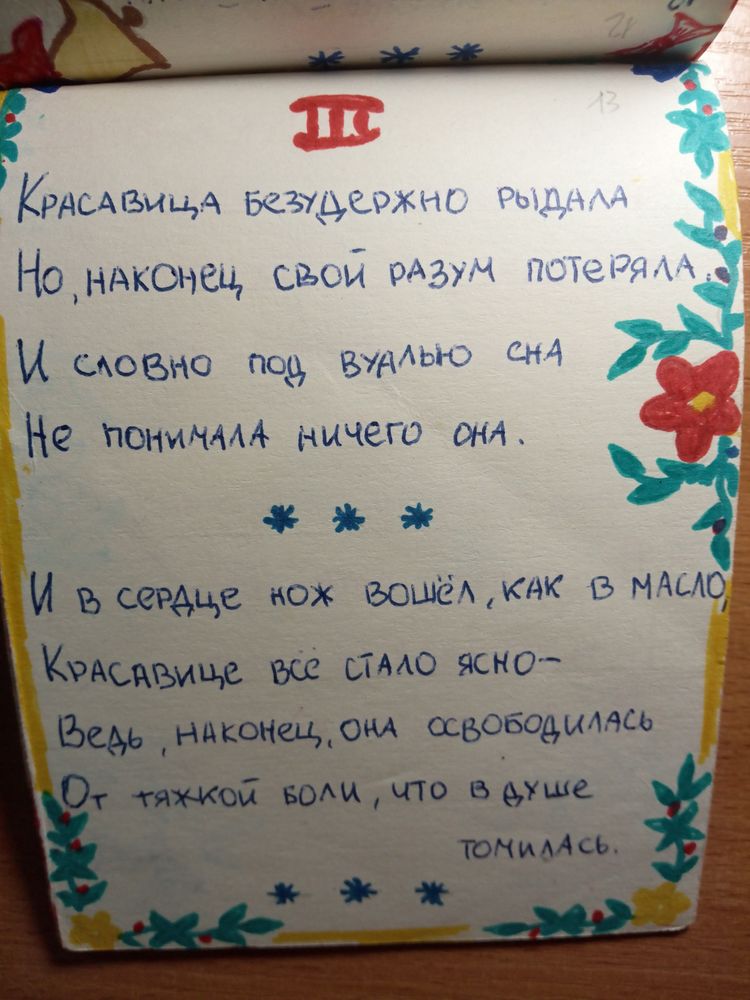 28
13
III
Красавица безудержно рыдала
Но, наконец свой разум потеряла.
И словно под вуалью сна
Не понимала ничего она.
* * *
И в сердце нож вошёл, как в масло,
Красавице всё стало ясно –
Ведь, наконец, она освободилась
От тяжкой боли, что в душе
томилась.
* * *